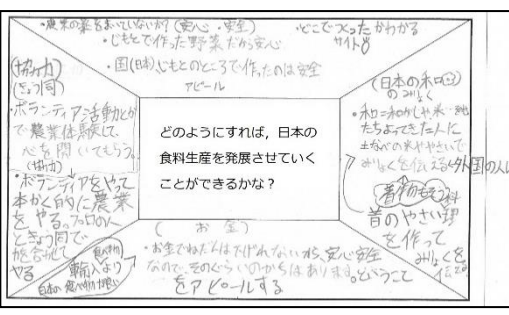 ・農業の薬をまいていないか?(安心・安全)
・じもとで作った野菜だから安心
・国(日本)じもとのところで作ったのは安全
アピール
・どこでつくったかわかる
サイト
(協力)
(きょう同)
・ボランティア活動とか
で農業体験して、
心を開いてもらう。
(協力)
・ボランティアをやって
本かく的に農業
をやる。プロの人と
きょう同で
やる
食べ物
輸入より
日本の食べ物が良い
どのようにすれば，日本の
食料生産を発展させていく
ことができるかな？
(日本の和
のみりょく
・和=和がしや米
たちよってきた人に
土なべの米ややさいで
みりょくを伝える
外国の人に
着物もそう
昔のやさい料理
を作って
みりょくを
(お金)
・お金でねだんは下げれないから、安心安全
なので、そのぐらいのかちはあります。ということ
をアピールする